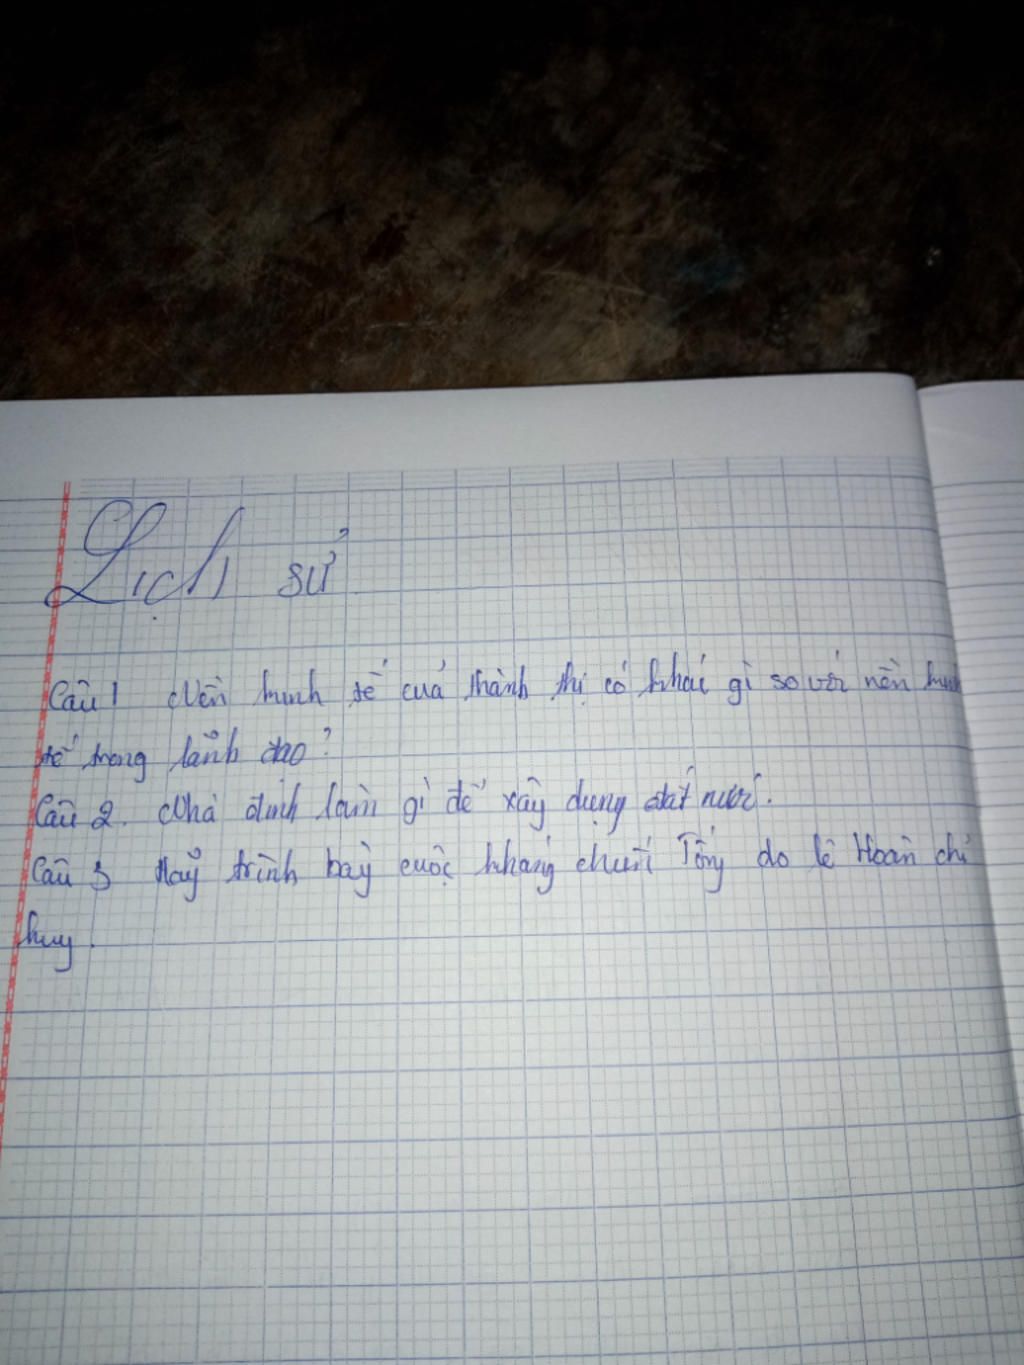 Lịch sử
Câu 1 Nền kinh tế của thành thị có khác gì so với nền kinh
tế trong lãnh đạo?
Câu 2. Nhà đinh làm gì để xây dựng đất nước.
Câu 3 Hãy trình bày cuộc kháng chiến Tống do lê Hoàn chỉ
huy.